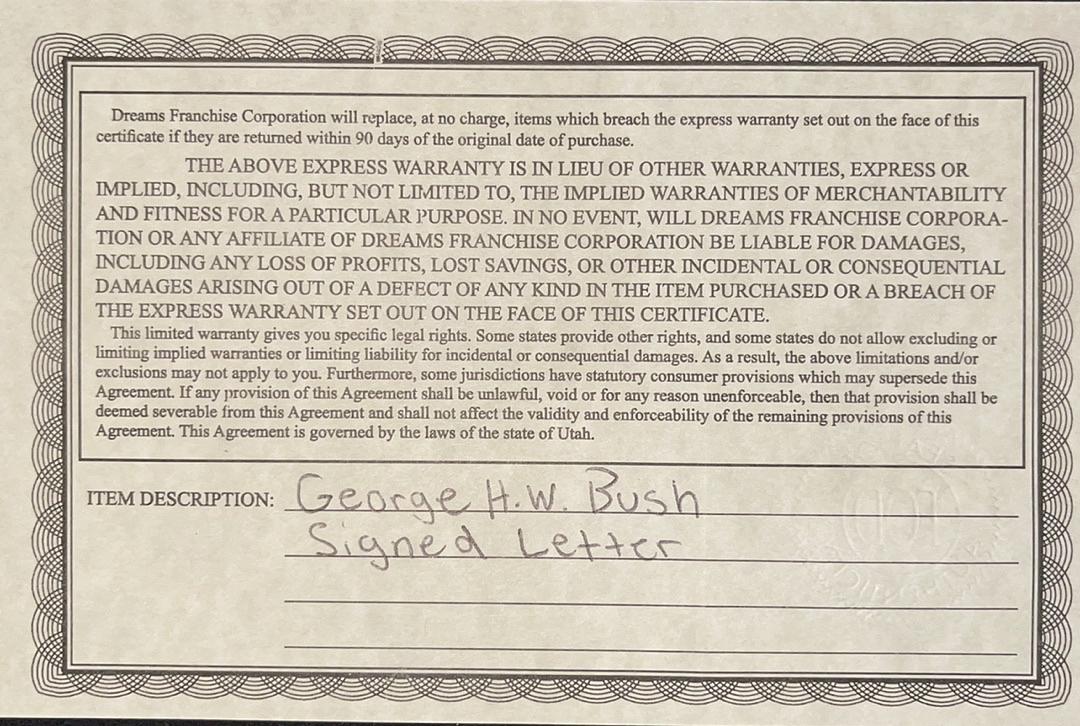 Dreams Franchise Corporation will replace, at no charge, items which breach the express warranty set out on the face of this
certificate if they are returned within 90 days of the original date of purchase.
THE ABOVE EXPRESS WARRANTY IS IN LIEU OF OTHER WARRANTIES, EXPRESS OR
IMPLIED, INCLUDING, BUT NOT LIMITED TO, THE IMPLIED WARRANTIES OF MERCHANTABILITY
AND FITNESS FOR A PARTICULAR PURPOSE. IN NO EVENT, WILL DREAMS FRANCHISE CORPORA-
TION OR ANY AFFILIATE OF DREAMS FRANCHISE CORPORATION BE LIABLE FOR DAMAGES,
INCLUDING ANY LOSS OF PROFITS, LOST SAVINGS, OR OTHER INCIDENTAL OR CONSEQUENTIAL
DAMAGES ARISING OUT OF A DEFECT OF ANY KIND IN THE ITEM PURCHASED OR A BREACH OF
THE EXPRESS WARRANTY SET OUT ON THE FACE OF THIS CERTIFICATE.
This limited warranty gives you specific legal rights. Some states provide other rights, and some states do not allow excluding or
limiting implied warranties or limiting liability for incidental or consequential damages. As a result, the above limitations and/or
exclusions may not apply to you. Furthermore, some jurisdictions have statutory consumer provisions which may supersede this
Agreement. If any provision of this Agreement shall be unlawful, void or for any reason unenforceable, then that provision shall be
deemed severable from this Agreement and shall not affect the validity and enforceability of the remaining provisions of this
Agreement. This Agreement is governed by the laws of the state of Utah.
ITEM DESCRIPTION: George H.W. Bush
Signed Letter